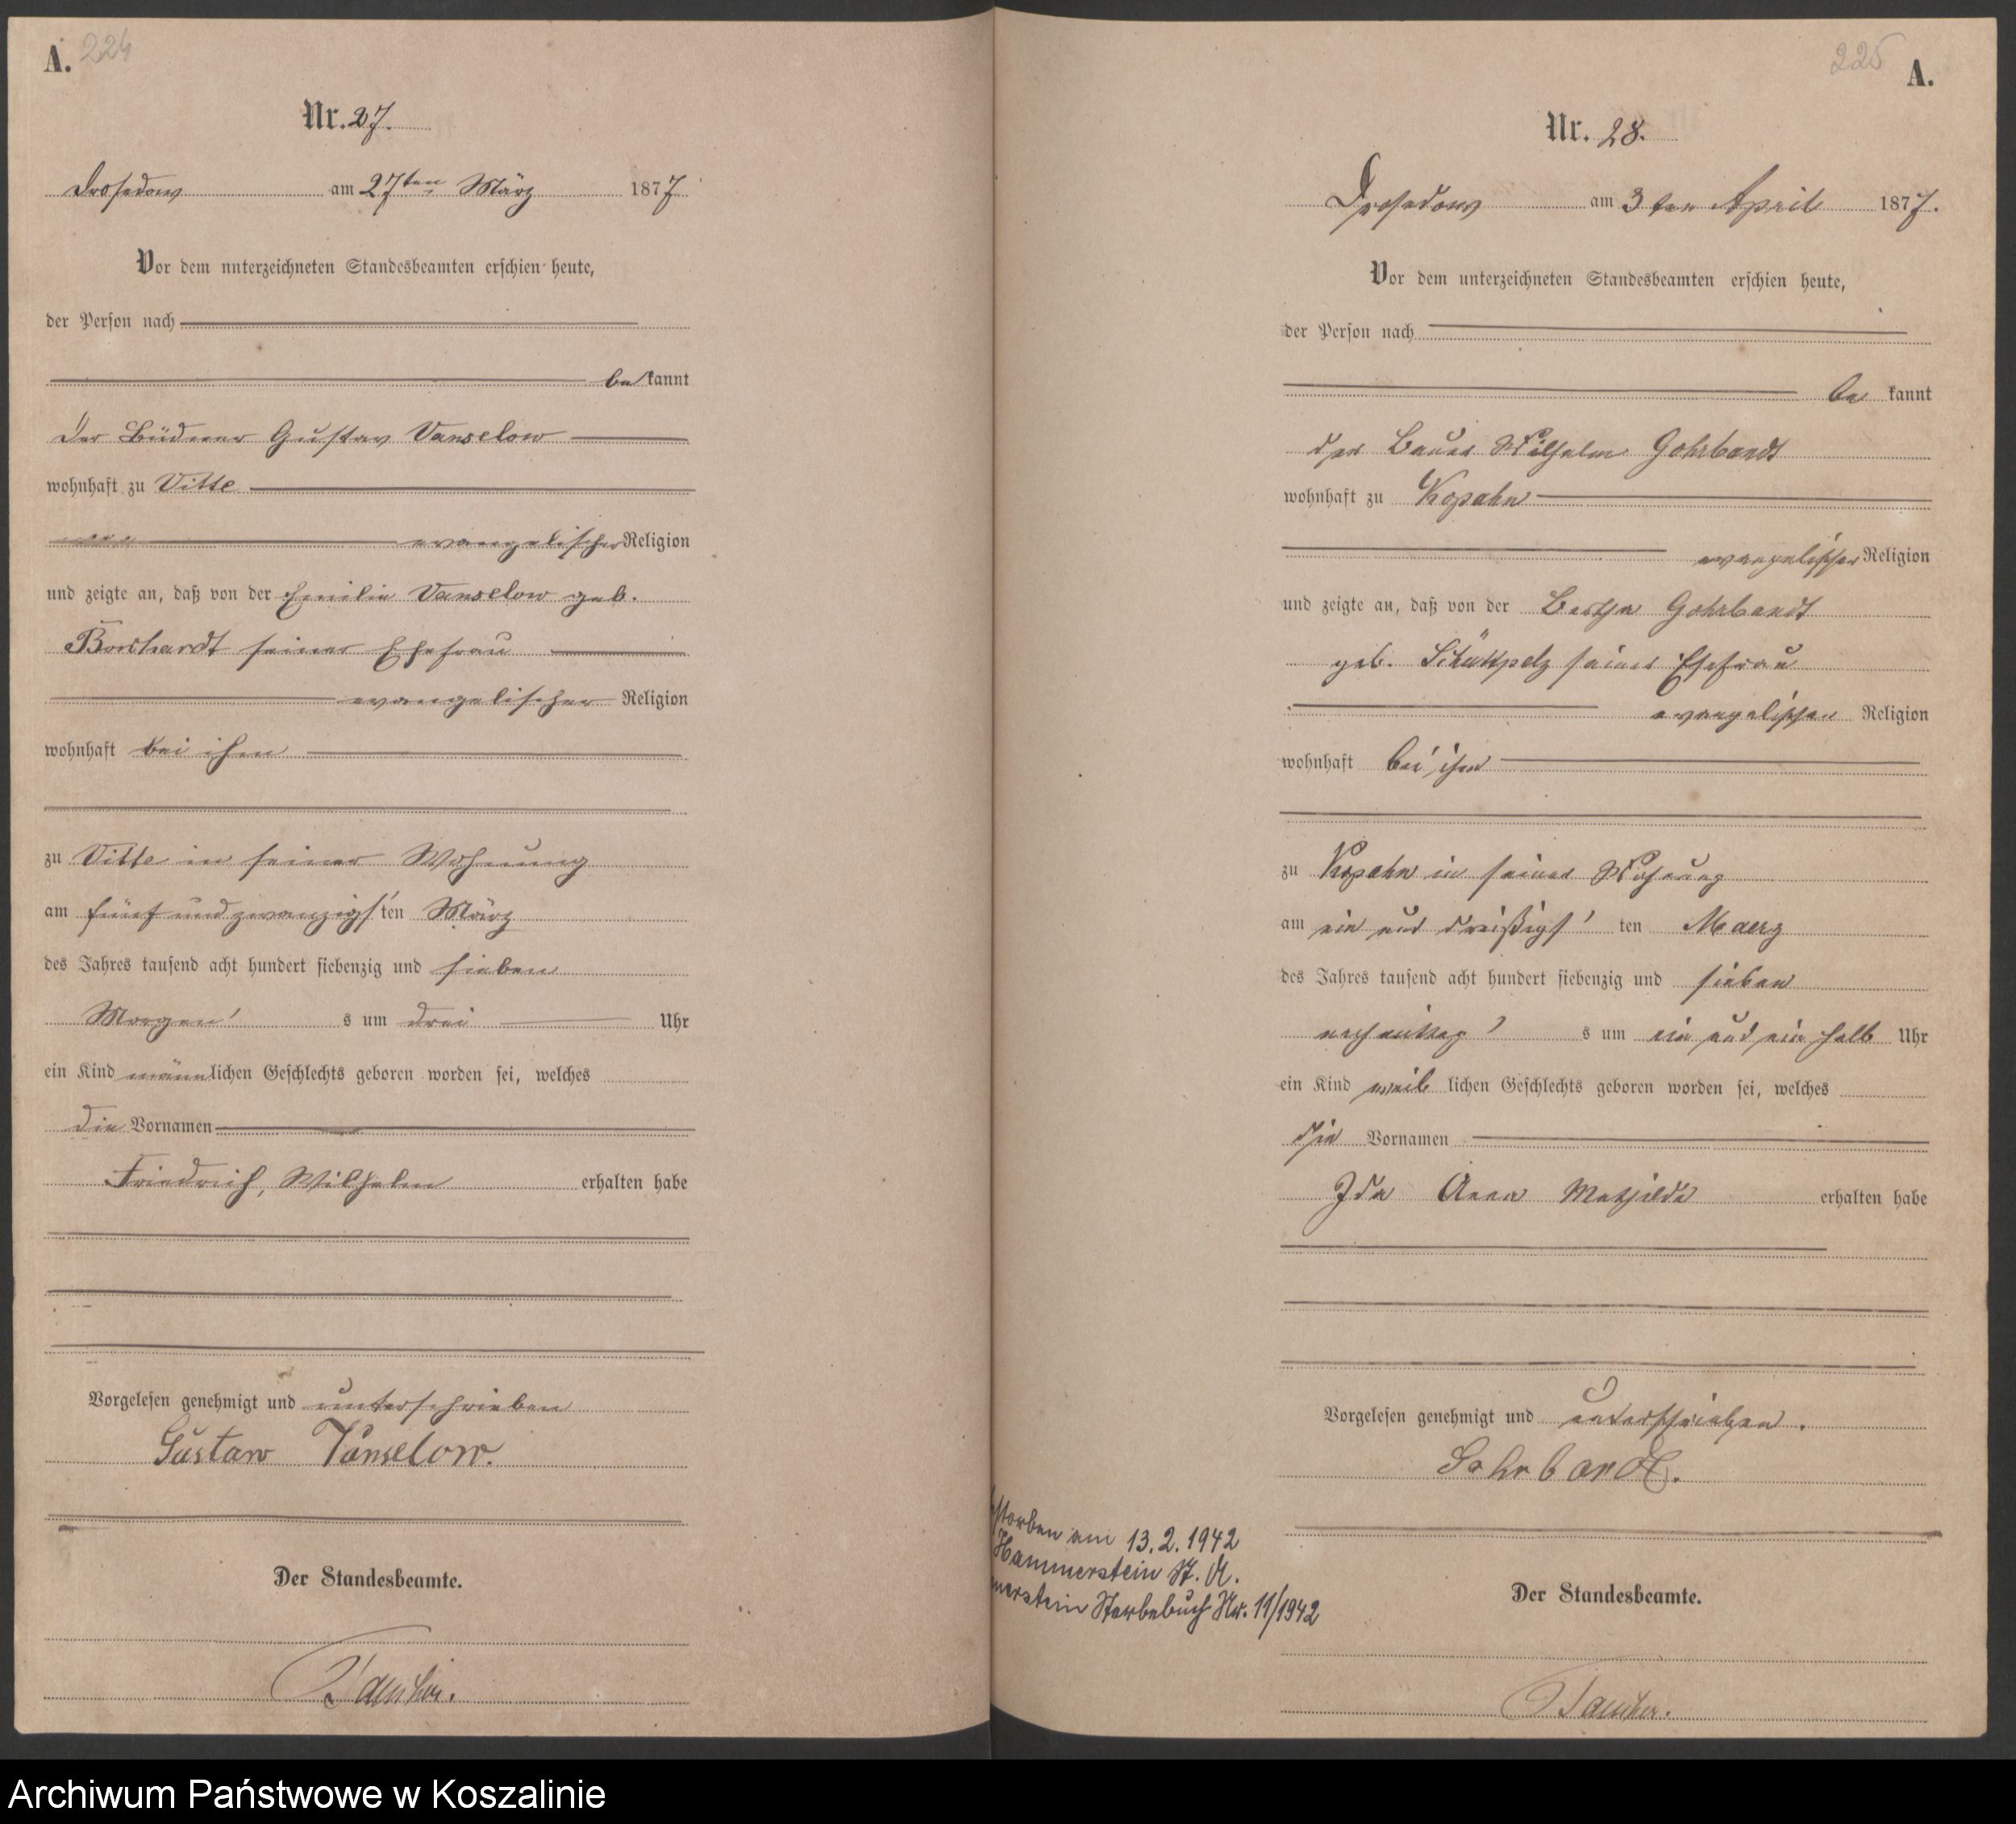 A. 224
Nr. 27.
Drosedow am 27ten März 1877
Vor dem unterzeichneten Standesbeamten erschien heute,
der Person nach
be kannt
der Büdner Gustav Vanselow
wohnhaft zu Vitte
evangelischer Religion
und zeigte an, daß von der Emilie Vanselow geb.
Borchardt seiner Ehefrau
evangelischer Religion
wohnhaft bei ihm
zu Vitte in seiner Wohnung
am fünf und zwanzigsten März
des Jahres tausend acht hundert siebenzig und sieben
Morgens um drei Uhr
ein Kind männlichen Geschlechts geboren worden sei, welches
die Vornamen
Friedrich, Wilhelm erhalten habe
Vorgelesen genehmigt und unterschrieben
Gustaw Vanselow.
Der Standesbeamte.
225 A.
Nr. 28.
Drosedow am 3ten April 1877.
Vor dem unterzeichneten Standesbeamten erschien heute,
der Person nach
be kannt
der Bauer Wilhelm Gohrbandt
wohnhaft zu Kopahn
evangelischer Religion
und zeigte an, daß von der Bertha Gohrbandt
geb. seiner Ehefrau
evangelischen Religion
wohnhaft bei ihm
zu Kopahn in seiner Wohnung
am ein und dreißigsten Maerz
des Jahres tausend acht hundert siebenzig und sieben
nachmittags um ein und ein halb Uhr
ein Kind weiblichen Geschlechts geboren worden sei, welches
die Vornamen
Ida Anna Mathilde erhalten habe
Vorgelesen genehmigt und unterschrieben.
Gohrbandt.
storben am 13.2.1942
Hammerstein St. A.
merstein Sterbebuch Nr. 11/1942
Der Standesbeamte.
Archiwum Państwowe w Koszalinie